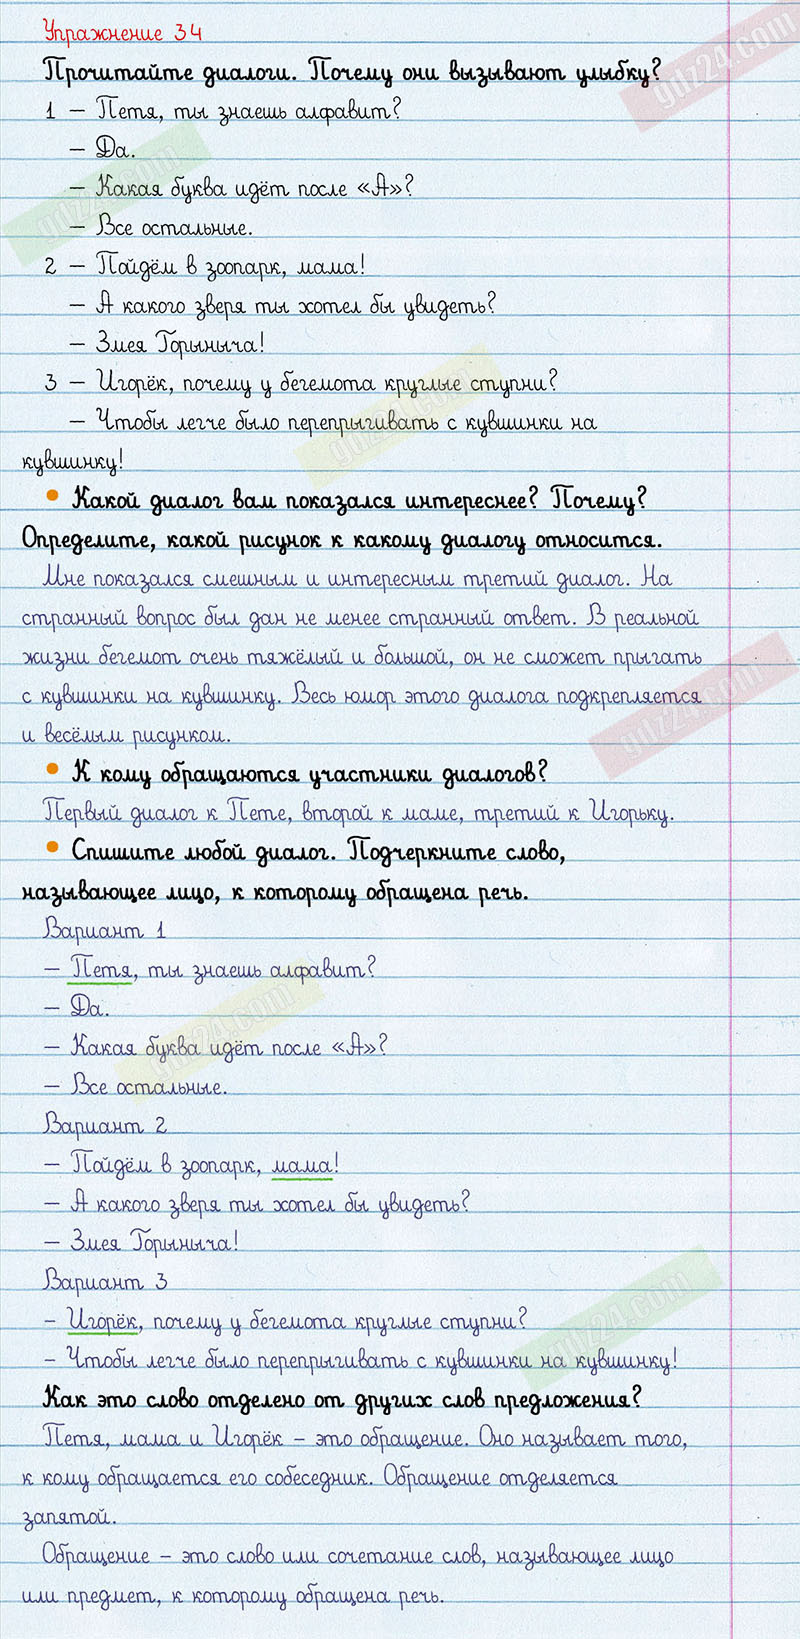 Упражнение 34
Прочитайте диалоги. Почему они вызывают улыбку?
1 – Петя, ты знаешь алфавит?
– Да.
– Какая буква идёт после «А»?
– Все остальные.
2 – Пойдём в зоопарк, мама!
– А какого зверя ты хотел бы увидеть?
– Змея Горыныча!
3 – Игорёк, почему у бегемота круглые ступни?
– Чтобы легче было перепрыгивать с кувшинки на
кувшинку!
• Какой диалог вам показался интереснее? Почему?
Определите, какой рисунок к какому диалогу относится.
Мне показался смешным и интересным третий диалог. На
странный вопрос был дан не менее странный ответ. В реальной
жизни бегемот очень тяжёлый и большой, он не сможет прыгать
с кувшинки на кувшинку. Весь юмор этого диалога подкрепляется
и весёлым рисунком.
• К кому обращаются участники диалогов?
Первый диалог к Пете, второй к маме, третий к Игорьку.
• Спишите любой диалог. Подчеркните слово,
называющее лицо, к которому обращена речь.
Вариант 1
– Петя, ты знаешь алфавит?
– Да.
– Какая буква идёт после «А»?
– Все остальные.
Вариант 2
– Пойдём в зоопарк, мама!
– А какого зверя ты хотел бы увидеть?
– Змея Горыныча!
Вариант 3
– Игорёк, почему у бегемота круглые ступни?
– Чтобы легче было перепрыгивать с кувшинки на кувшинку!
Как это слово отделено от других слов предложения?
Петя, мама и Игорёк – это обращение. Оно называет того,
к кому обращается его собеседник. Обращение отделяется
запятой.
Обращение – это слово или сочетание слов, называющее лицо
или предмет, к которому обращена речь.
gdz24.com
gdz24.com
gdz24.com
gdz24.com
gdz24.com
gdz24.com